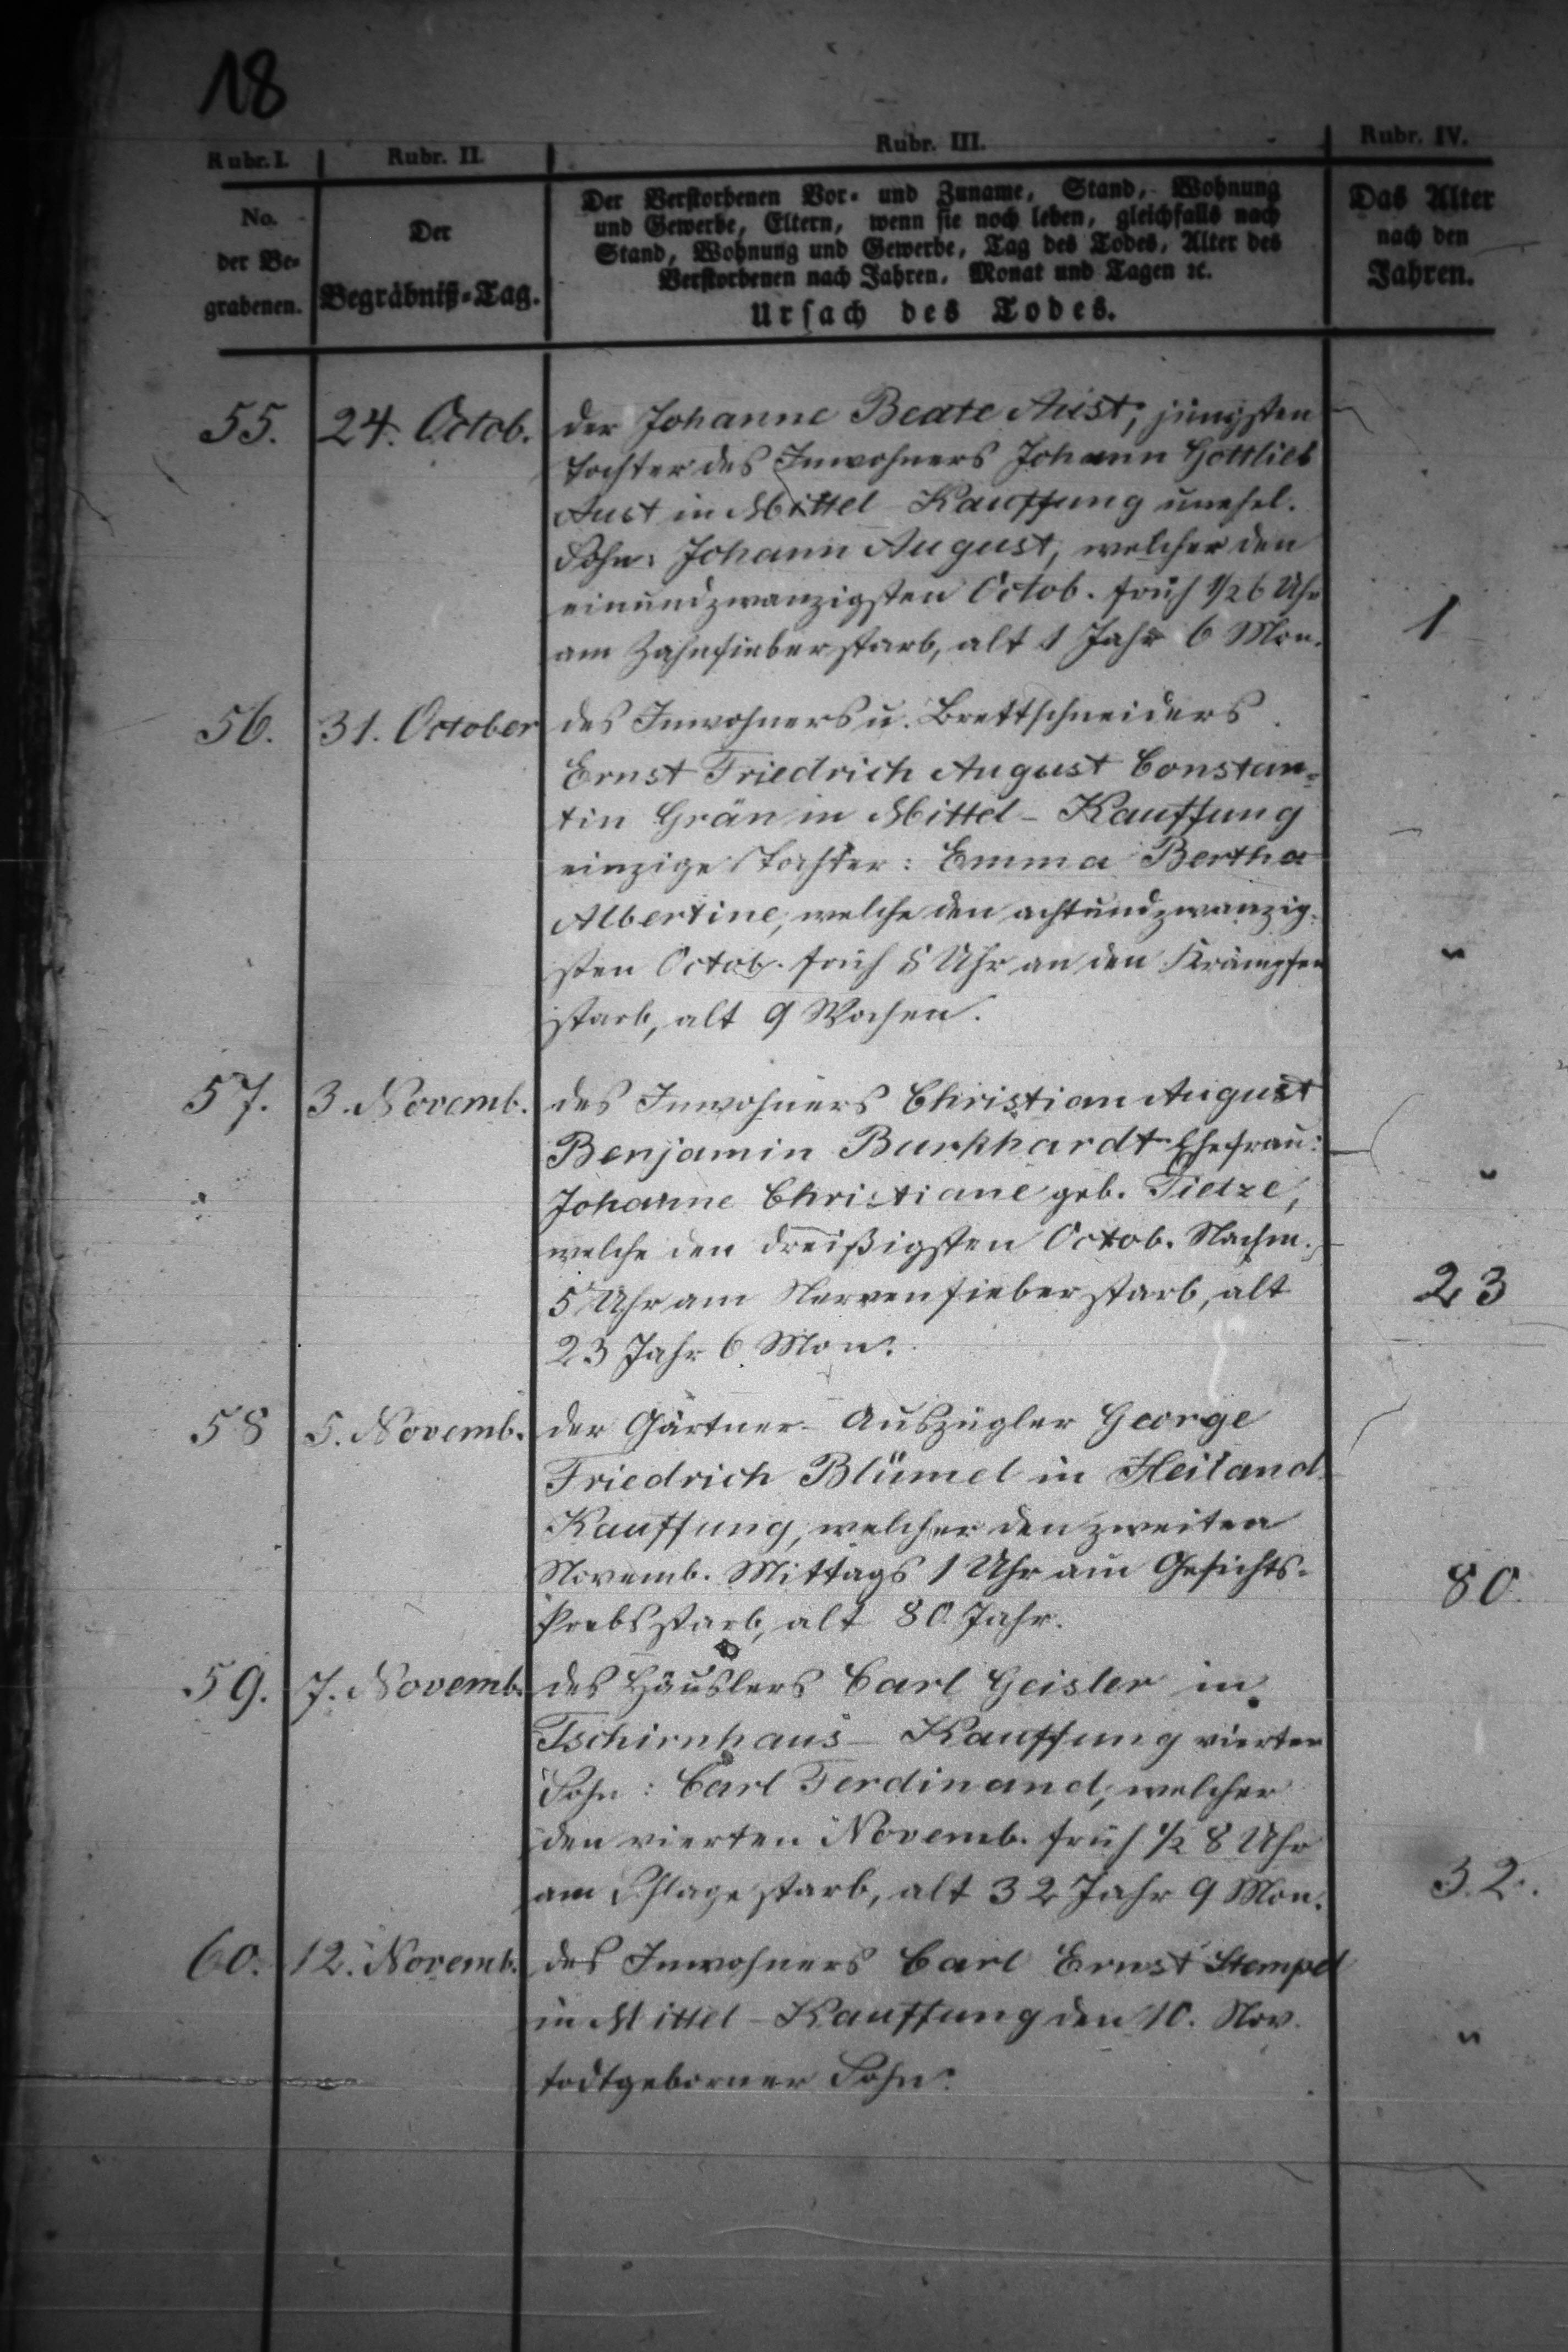 18
Rubr. I. Rubr. II. Rubr. III. Rubr. IV.
No. der Be- grabenen.
Der Begräbniß-Tag.
Der Verstorbenen Vor- und Zuname, Stand, Wohnung
und Gewerbe, Eltern, wenn sie noch leben, gleichfalls nach
Stand, Wohnung und Gewerbe, Tag des Todes, Alter des
Verstorbenen nach Jahren, Monat und Tagen ꝛc.
Ursach des Todes.
Das Alter
nach den
Jahren.
55. 24. Octob. der Johanne Beate Aust, jüngsten
Tochter des Inwohners Johann Gottlieb
Aust in Mittel-Kauffung unehel.
Sohn: Johann August, welcher den
einundzwanzigsten Octob. früh 1/2 6 Uhr
am Zahnfieber starb, alt 1 Jahr 6 Mon. 1
56. 31. October des Inwohners u. Brettschneiders
Ernst Friedrich August Constan-
tin Grän in Mittel-Kauffung
einzige Tochter: Emma Bertha
Albertine, welche den achtundzwanzig-
sten Octob. früh 8 Uhr an den Krämpfen "
starb, alt 9 Wochen.
57. 3. Novemb. des Inwohners Christian August
Benjamin Burkhardt Ehefrau:
Johanne Christiane geb. Tietze,
welche den dreißigsten Octob. Nachm.
5 Uhr am Nervenfieber starb, alt 23
23 Jahr 6 Mon.
58 5. Novemb. der Gärtner-Auszügler George
Friedrich Blümel in Heiland-
Kauffung, welcher den zweiten
Novemb. Mittags 1 Uhr am Gesichts- 80.
krebs starb, alt 80 Jahr.
59. 7. Novemb. des Häuslers Carl Geisler in
Tschirnhaus-Kauffung vierter
Sohn: Carl Ferdinand, welcher
den vierten Novemb. früh 1/2 8 Uhr
am Schlage starb, alt 32 Jahr 9 Mon. 32.
60. 12. Novemb. des Inwohners Carl Ernst Stempel
in Mittel-Kauffung den 10. Nov. "
todtgeborner Sohn.